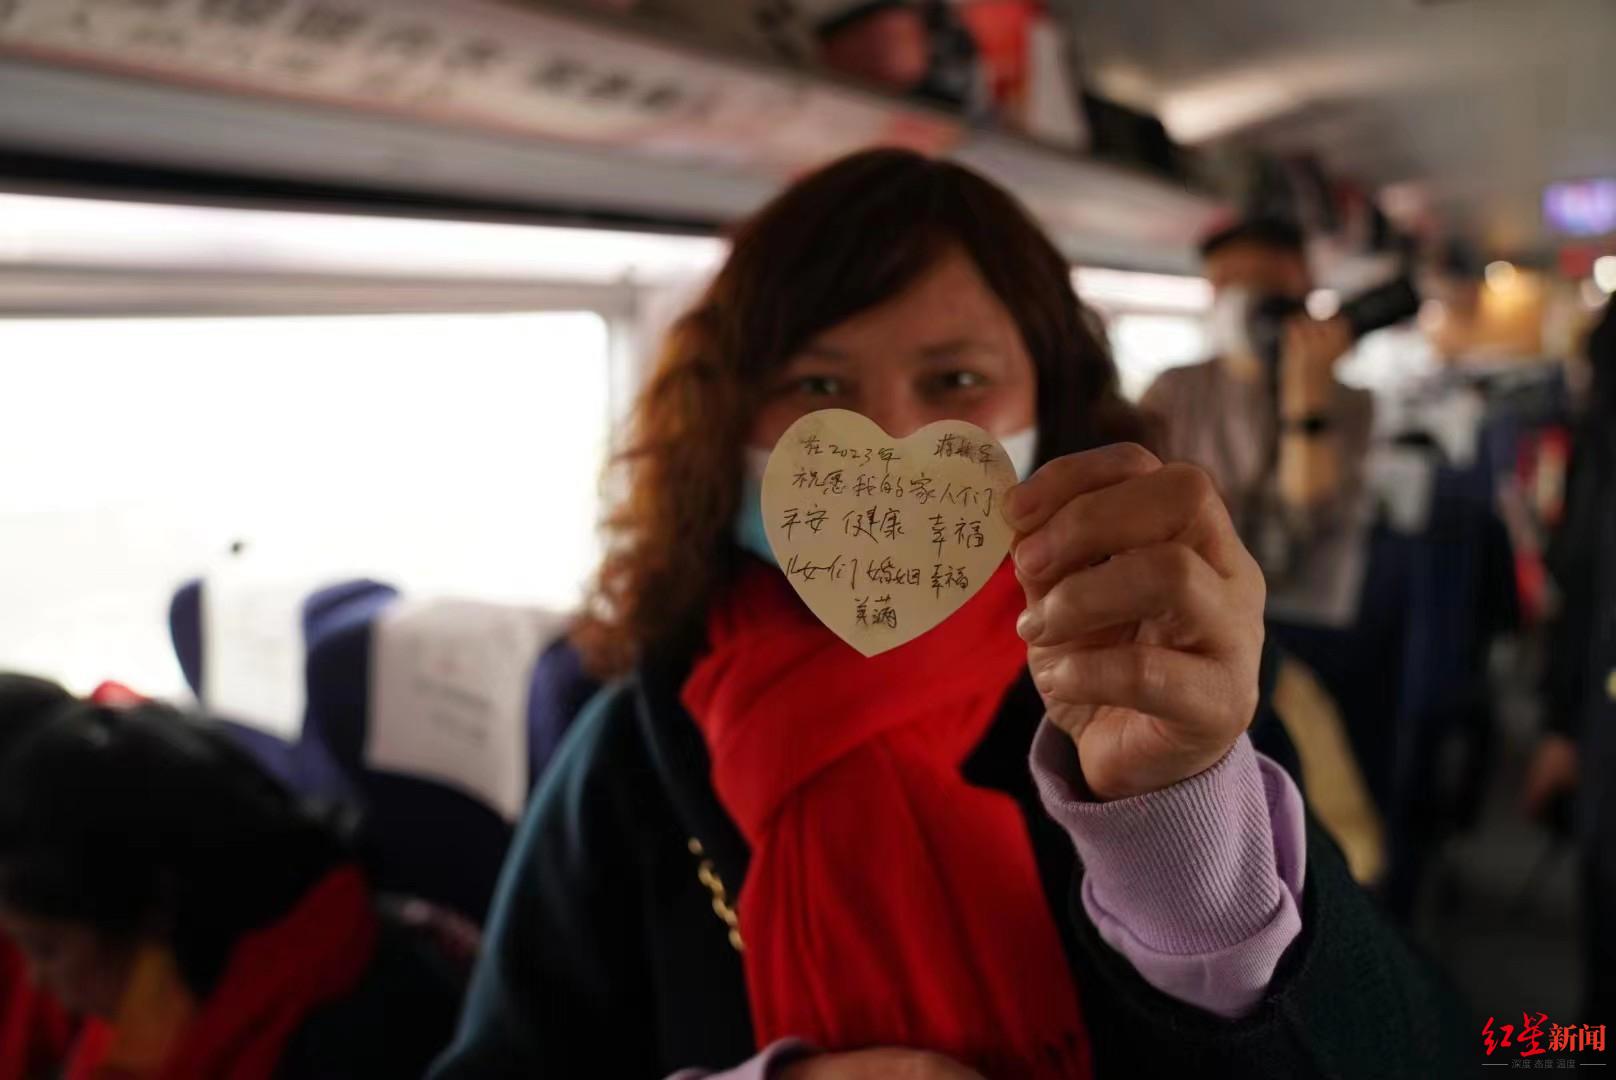 在2023年
祝愿我的家人们
平安 健康 幸福
儿女们婚姻幸福
美满
红星新闻
深度 态度 温度